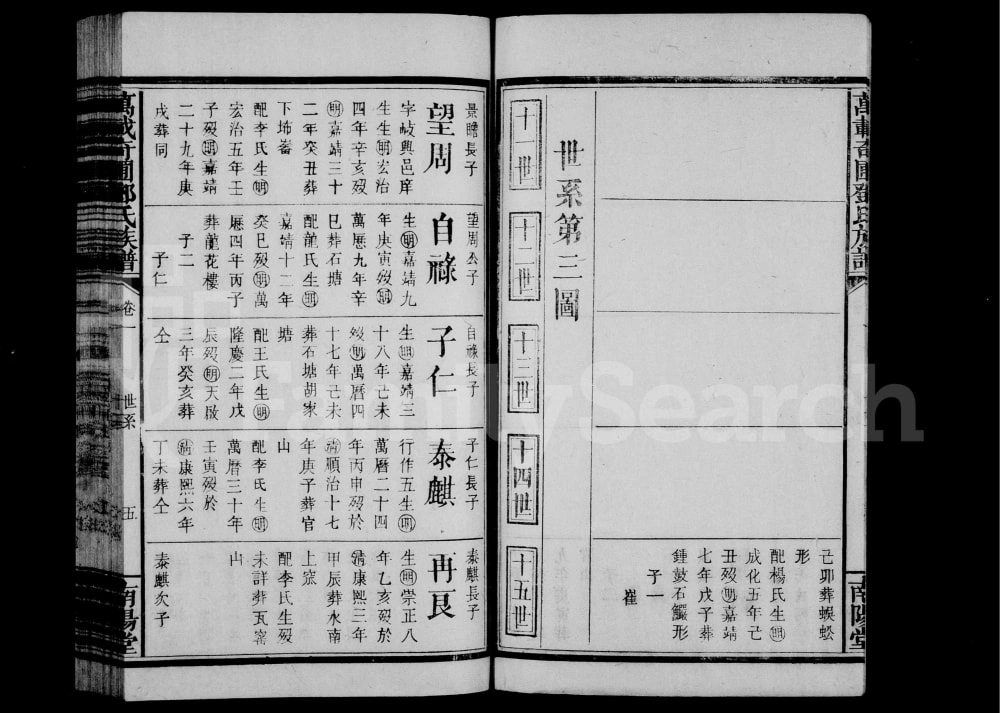 萬載奇圃鄧氏族譜
南陽堂
己卯葬蜈蚣
形
配楊氏生明
成化五年己
丑歿明嘉靖
七年戊子葬
鍾鼓石鱺形
子一
崔
世系第三圖
十一世
十二世
十三世
十四世
十五世
景瞻長子
望周
字岐興邑庠
生生明宏治
四年辛亥歿
明嘉靖三十
二年癸丑葬
下埽崙
配李氏生明
宏治五年壬
子歿明嘉靖
二十九年庚
戌葬同
望周公子
自祿
生明嘉靖九
年庚寅歿明
萬曆九年辛
巳葬石塘
配龍氏生明
嘉靖十二年
癸巳歿明萬
曆四年丙子
葬龍花樓
子二
子仁
自祿長子
子仁
生明嘉靖三
十八年己未
歿明萬曆四
十七年己未
葬石塘胡家
塘
配王氏生明
隆慶二年戊
辰歿明天啟
三年癸亥葬
仝
子仁長子
泰麒
行作五生明
萬曆二十四
年丙申歿於
清順治十七
年庚子葬官
山
配李氏生明
萬曆三十年
壬寅歿於
清康熙六年
丁未葬仝
泰麒長子
再艮
生明崇正八
年乙亥歿於
清康熙三年
甲辰葬水南
上窰
配李氏生歿
未詳葬瓦窰
山
泰麒次子
卷一
世系
五
南陽堂